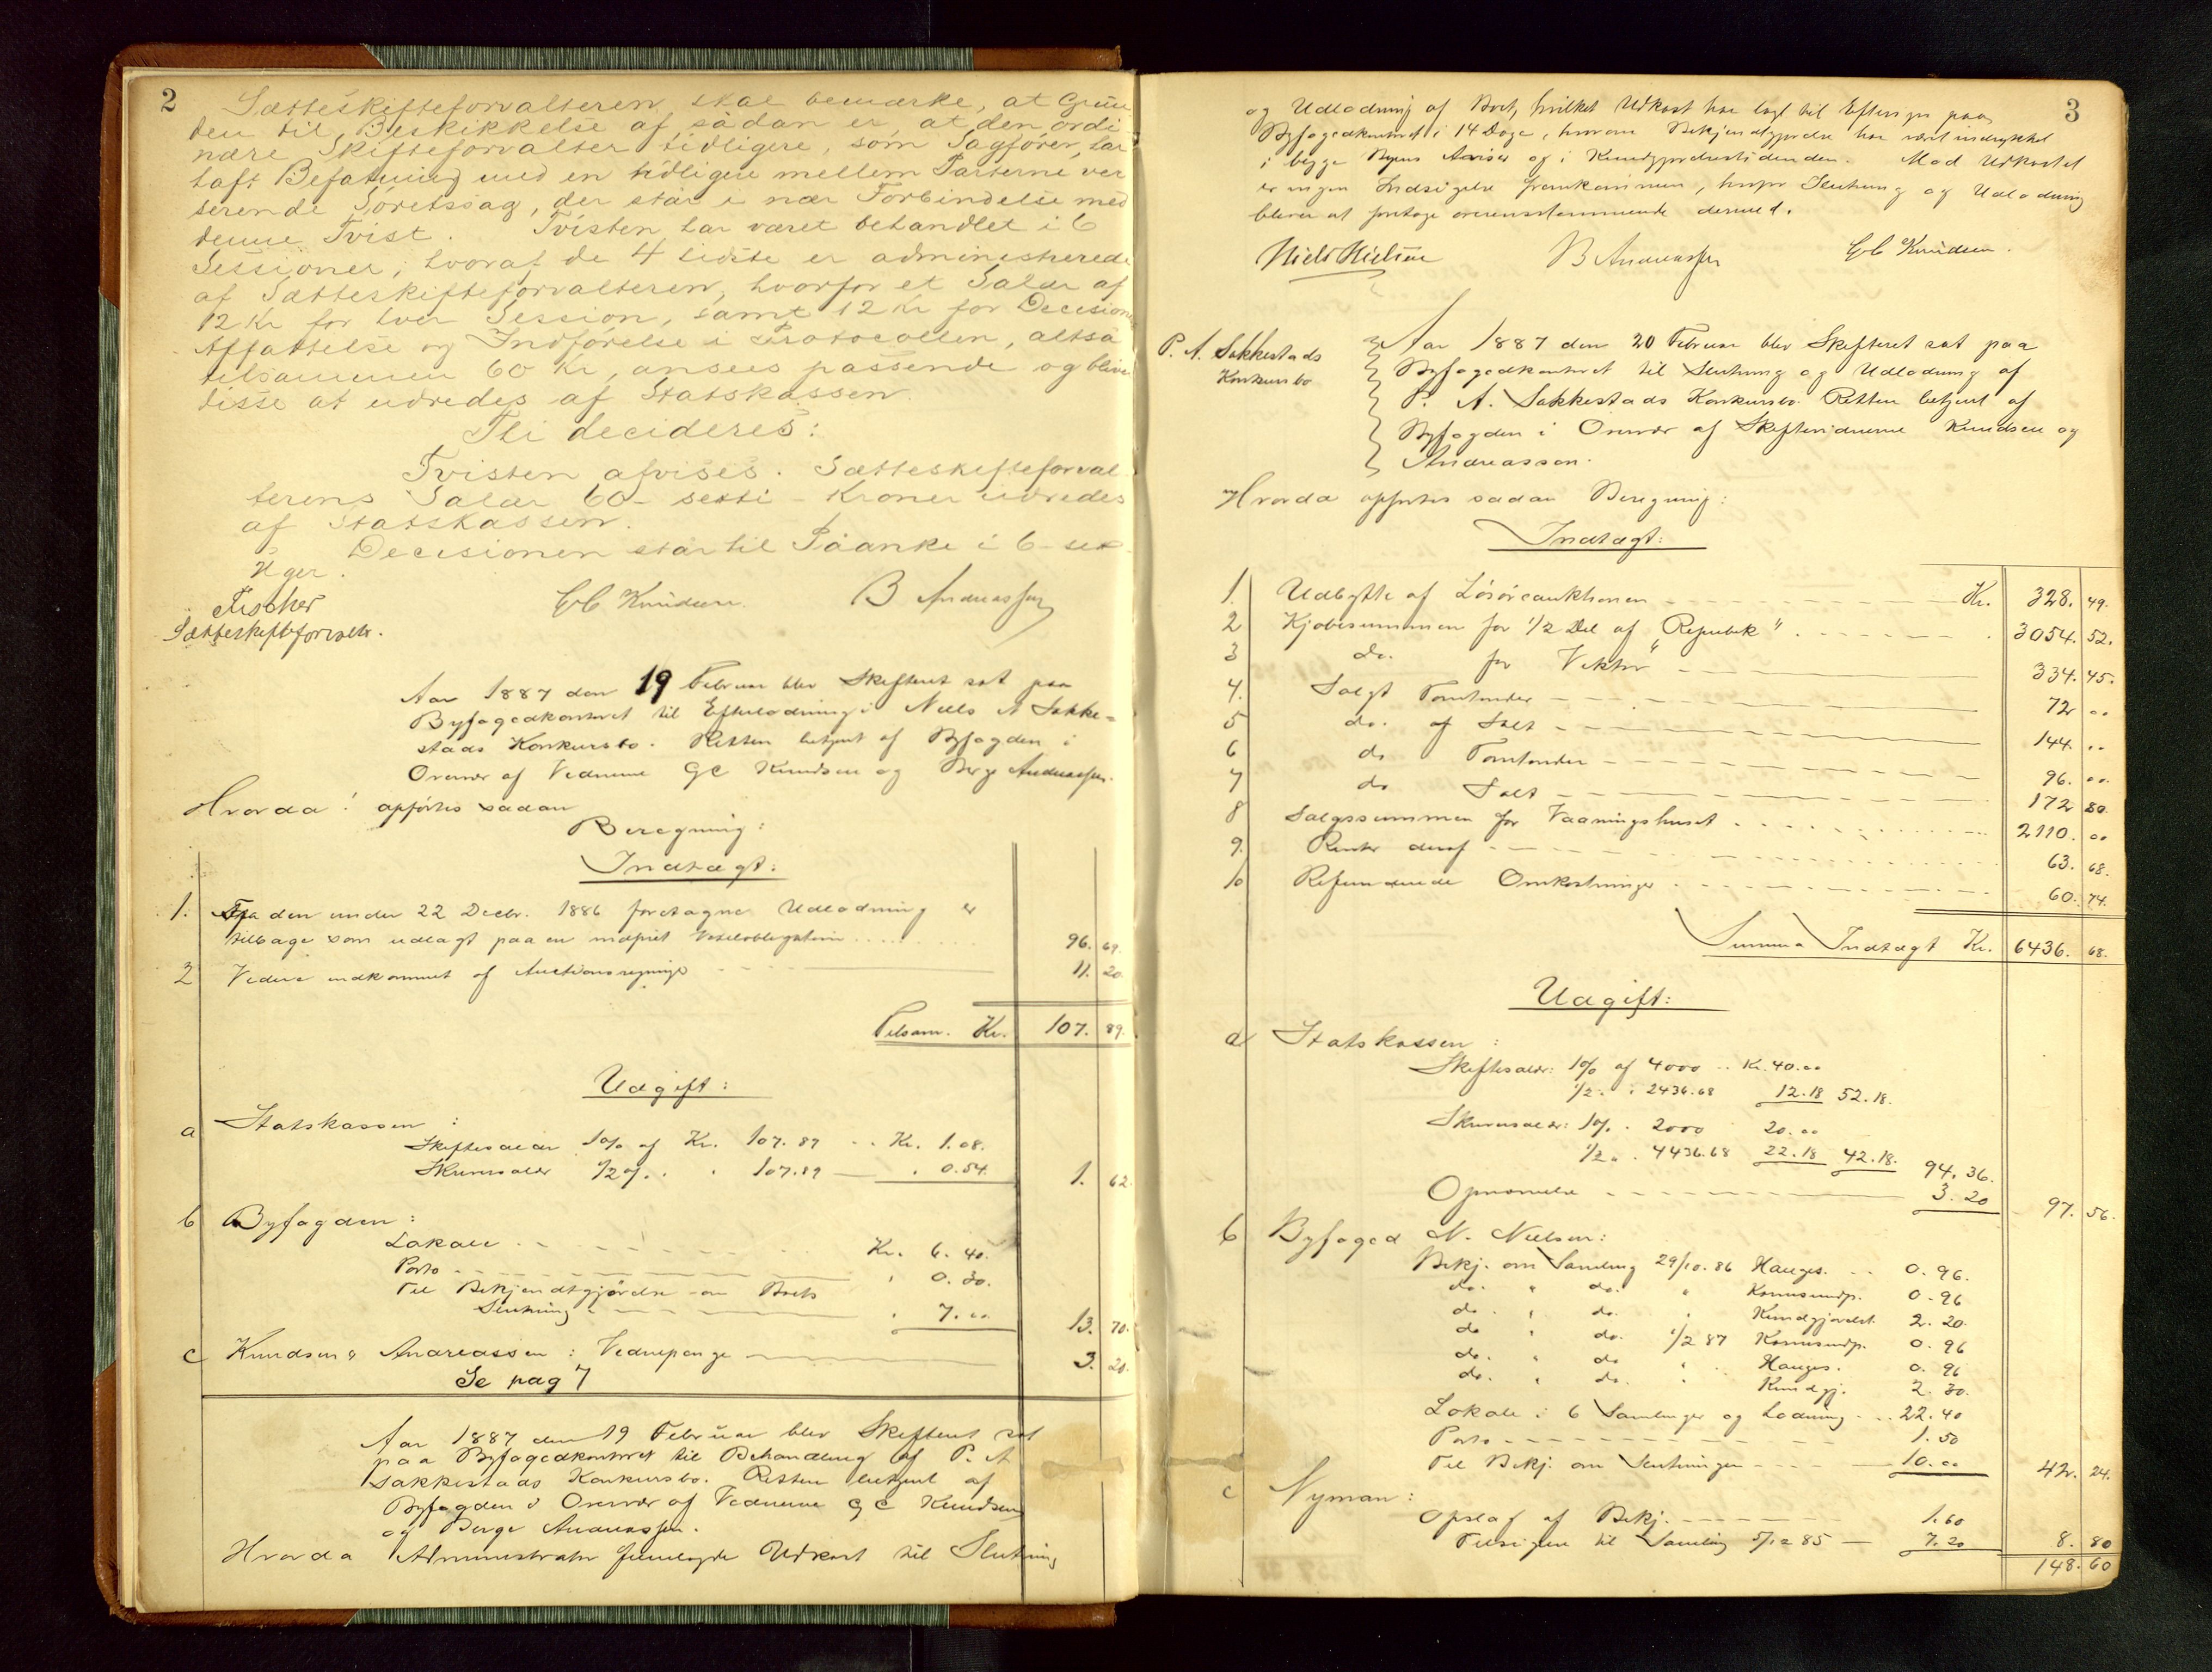 2
Sætteskifteforvalteren skal bemærke, at Grun
den til Beskikkelse af sådan er, at den ordi
nære Skifteforvalter tidligere, som Sagfører, har
haft Befatning med en tidligere mellem Parterne ver
serende Søretssag, der står i nær Forbindelse med
denne Tvist. Tvisten har været behandlet i 6
Sessioner, hvoraf de 4 sidste er administrerede
af Sætteskifteforvalteren, hvorfor et Salær af
12 Kr for hver Session, samt 12 Kr for Decisionens
Affattelse og Indførelse i Protocollen, altså
tilsammen 60 Kr, ansees passende og blive
disse at udredes af Statskassen.
Thi decideres:
Tvisten afvises. Sætteskifteforval
terens Salær 60 - sexti - Kroner udredes
af Statskassen.
Decisionen står til Påanke i 6 - sex
Uger.
Fischer
Sætteskifteforvalter.
GC Knudsen. B Andreassen
Aar 1887 den 19 Februar blev Skifteret sat paa
Byfogedkontoret til Efterlodning i Niels A Sakke=
stads Konkursbo. Retten betjent af Byfogden i
Overvær af Vidnerne GC Knudsen og Berge Andreassen.
Hvorda: opførtes sadan
Beregning:
Indtægt:
1. Fra den under 22 Decbr. 1886 foretagne Udlodning er
tilbage som udlagt paa en indfriet Vexelobligation 96. 69.
2 Videre indkommet af Auctionsregninge 11. 20.
Tilsam. Kr. 107. 89.
Udgift:
a Statskassen:
Skiftesalær 1% af Kr. 107.89 .. Kr. 1.08.
Skriversalær 1/2%. " 107.89 — " 0.54. 1. 62.
b Byfogden:
Lokale Kr. 6.40.
Porto " 0.30.
Til Bekjendtgjørelse om Boets
Slutning " 7.00 13. 70.
c Knudsen & Andreassen: Vidnepenge 3. 20.
Se pag 7
Aar 1887 den 19 Februar blev Skifteret sat
paa Byfogedkontoret til Behandling af P. A
Sakkestads Konkursbo. Retten betjent af
Byfogden i Overvær af Vidnerne G C Knudsen
og Berge Andreassen.
Hvorda Administrator fremlagde Udkast til Slutning
3
og Udlodning af Boet, hvilket Udkast har lagt til Eftersyn paa
Byfogedkontoret i 14 Dage, hvorom Bekjendtgjørelse har vært indrykket
i begge Byens Aviser og i Kundgjørelsestidenden. Mod Udkastet
er ingen Indsigelse fremkommen, hvorfor Slutning og Udlodning
bliver at foretage overensstemmende dermed.
Niels Nielsen B Andreassen GC Knudsen.
P. A. Sakkestads
Konkursbo
Aar 1887 den 20 Februar blev Skifteret sat paa
Byfogedkontoret til Slutning og Udlodning af
P. A. Sakkestads Konkursbo. Retten betjent af
Byfogden i Overvær af Skiftevidnerne Knudsen og
Andreassen.
Hvorda opførtes sadan Beregning:
Indtægt:
1. Udbytte af Løsøreauktionen Kr. 328. 49.
2 Kjøbesummen for 1/2 Del af "Republik" 3054. 52.
3 do. for "Viktor" 334. 45.
4. Solgt Tomtønder 72 00
5 do. af Salt 144. 00
6 do Tomtønder 96. 00.
7 do Salt 172 80.
8 Salgssummen for Vaaningshuset 2110. 00
9. Renter deraf 63. 68.
10 Refunderede Omkostninger 60. 74.
Summa Indtægt Kr. 6436. 68.
Udgift:
a Statskassen:
Skiftesalær: 1% af 4000 .. Kr. 40.00
1/2. " 2436.68 12.18 52.18.
Skriversalær: 1%. 2000 20.00
1/2 " . 4436.68 22.18 42.18. 94.36.
Opnævnelse 3.20 97. 56.
b Byfoged N. Nielsen:
Bekj. om Samling 29/10.86 Hauges. .. 0.96.
do. " do. " Karmsundp. 0.96
do. " do. " Kundgjørelst. 2.20.
do " do. 1/2 87 Karmsundp. 0.96
do. " do " Hauges. 0.96
do. " do. " Kundgj. 2.30.
Lokale i 6 Samlinger og Lodning 22.40
Porto 1.50
Til Bekj. om Slutningen 10.00 42. 24.
c Nyman:
Opslag af Bekj. 1.60
Tilsigelse til Samling 5/12 85 — 7.20 8. 80
148. 60